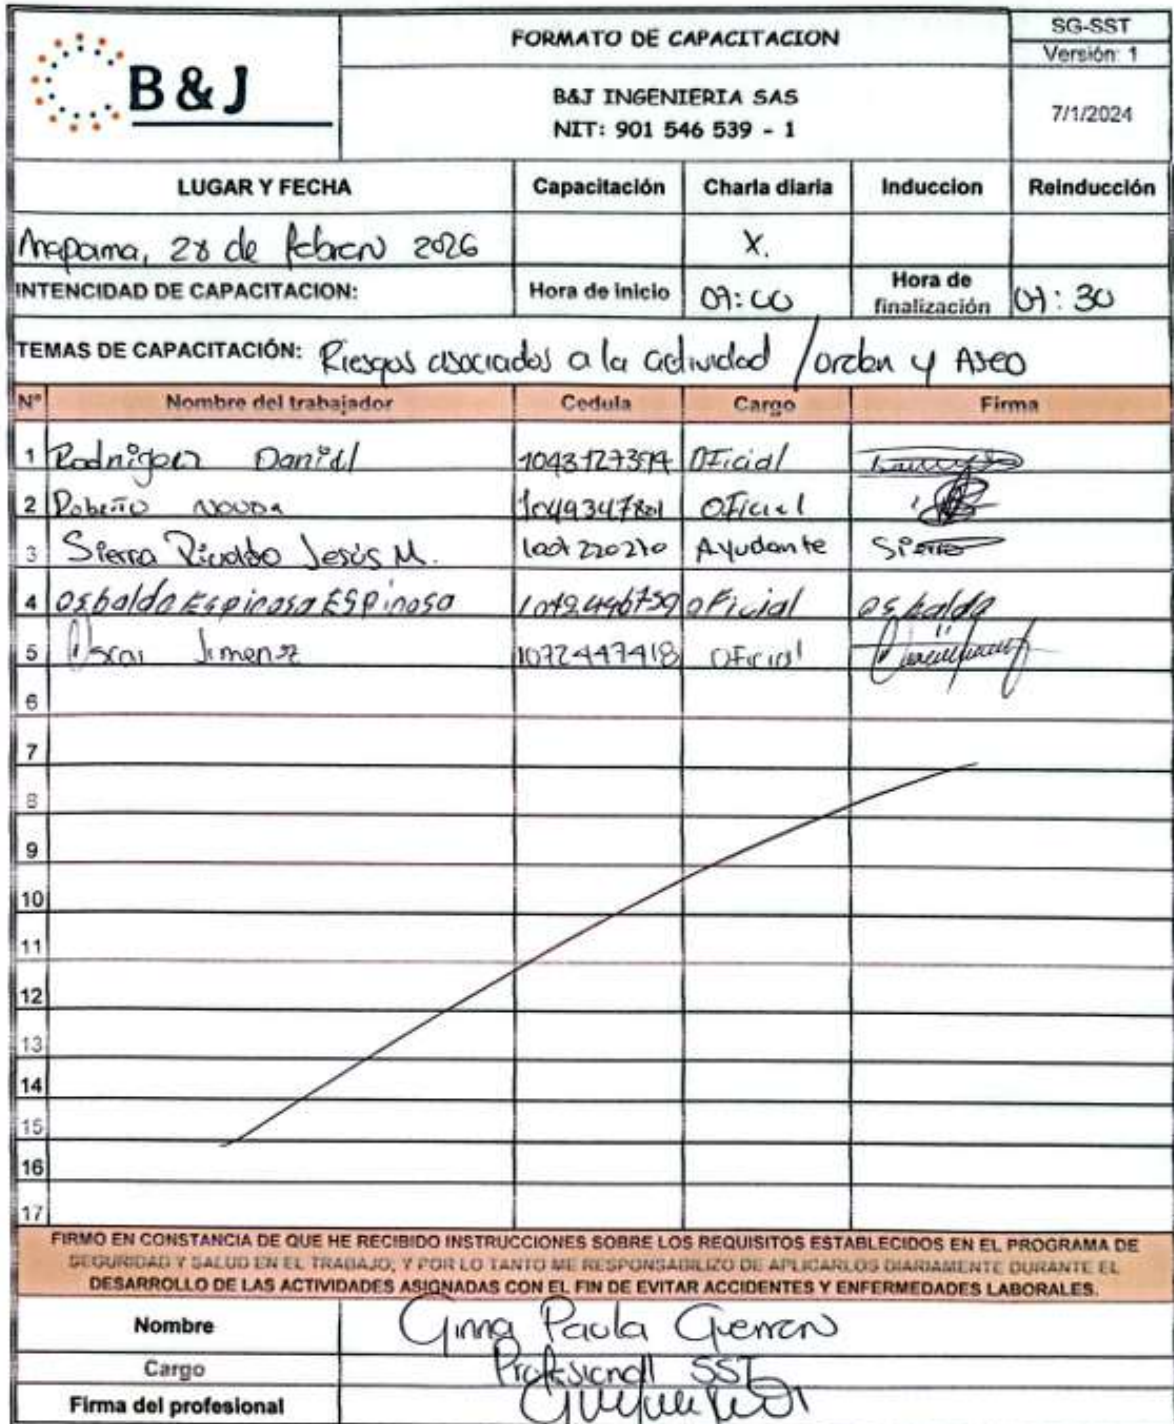 B & J
FORMATO DE CAPACITACION
SG-SST
Versión: 1
B&J INGENIERIA SAS
NIT: 901 546 539 - 1
7/1/2024
LUGAR Y FECHA Capacitación Charla diaria Induccion Reinducción
28 de febrero 2026 X.
INTENCIDAD DE CAPACITACION: Hora de inicio 07:00 Hora de finalización 07:30
TEMAS DE CAPACITACIÓN: Riesgos asociados a la actividad / orden y Aseo
N° Nombre del trabajador Cedula Cargo Firma
1 Rodriguez Daniel Oficial
2 Roberto Oficial
3 Sierra Jesús M. Ayudante Sierra
4 Osbaldo Espinosa Espinosa Oficial Osbaldo
5 Oscar Jimenez 1072447418 Oficial
6
7
8
9
10
11
12
13
14
15
16
17
FIRMO EN CONSTANCIA DE QUE HE RECIBIDO INSTRUCCIONES SOBRE LOS REQUISITOS ESTABLECIDOS EN EL PROGRAMA DE
SEGURIDAD Y SALUD EN EL TRABAJO, Y POR LO TANTO ME RESPONSABILIZO DE APLICARLOS DIARIAMENTE DURANTE EL
DESARROLLO DE LAS ACTIVIDADES ASIGNADAS CON EL FIN DE EVITAR ACCIDENTES Y ENFERMEDADES LABORALES.
Nombre Ginna Paola Guerrero
Cargo Profesional SST
Firma del profesional